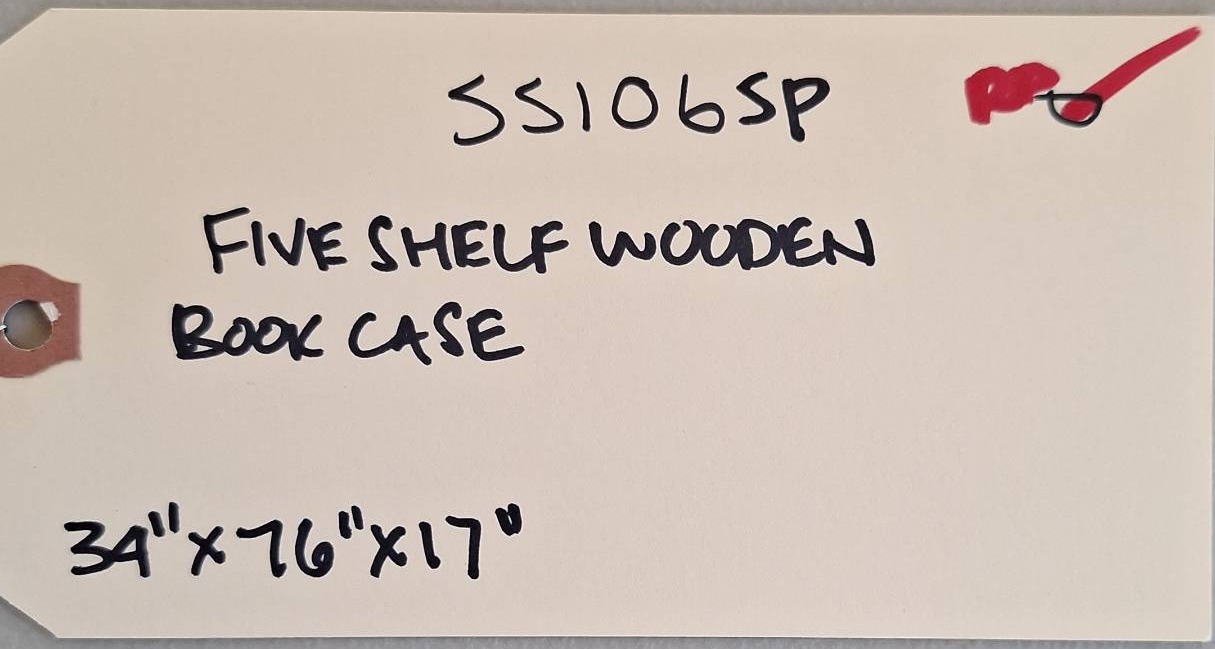 SS106SP
FIVE SHELF WOODEN
BOOK CASE
34"x76"x17"